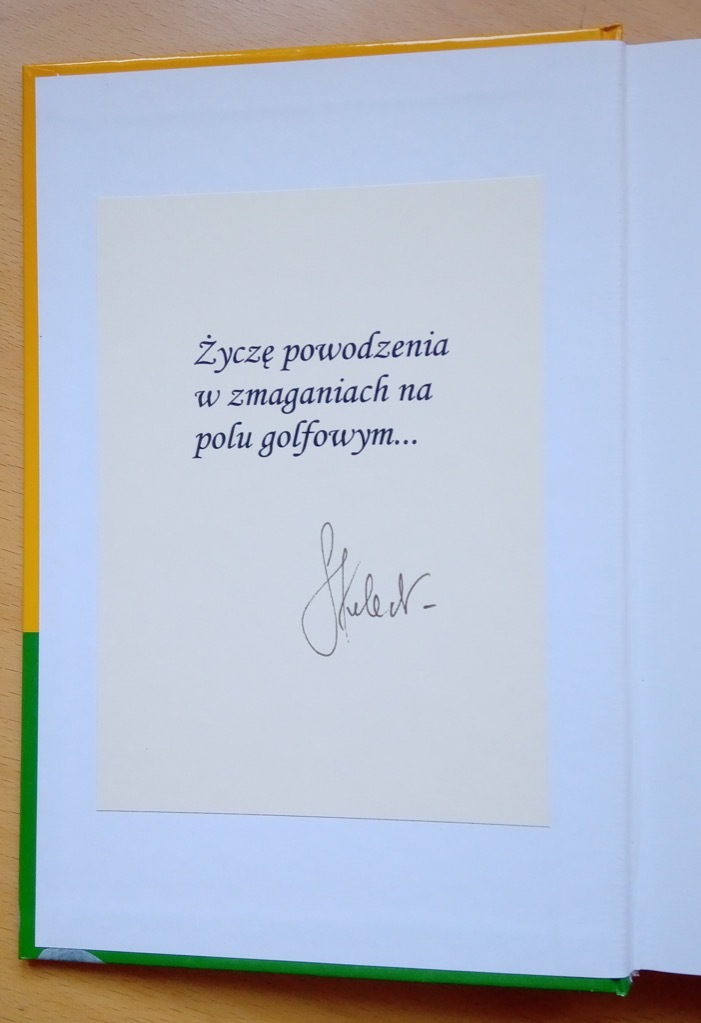 Życzę powodzenia
w zmaganiach na
polu golfowym...